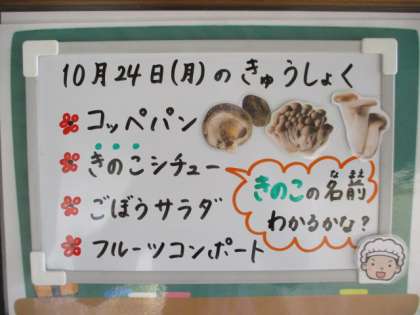 10月24日(月)のきゅうしょく
コッペパン
きのこシチュー
ごぼうサラダ
フルーツコンポート
きのこの名前
わかるかな?